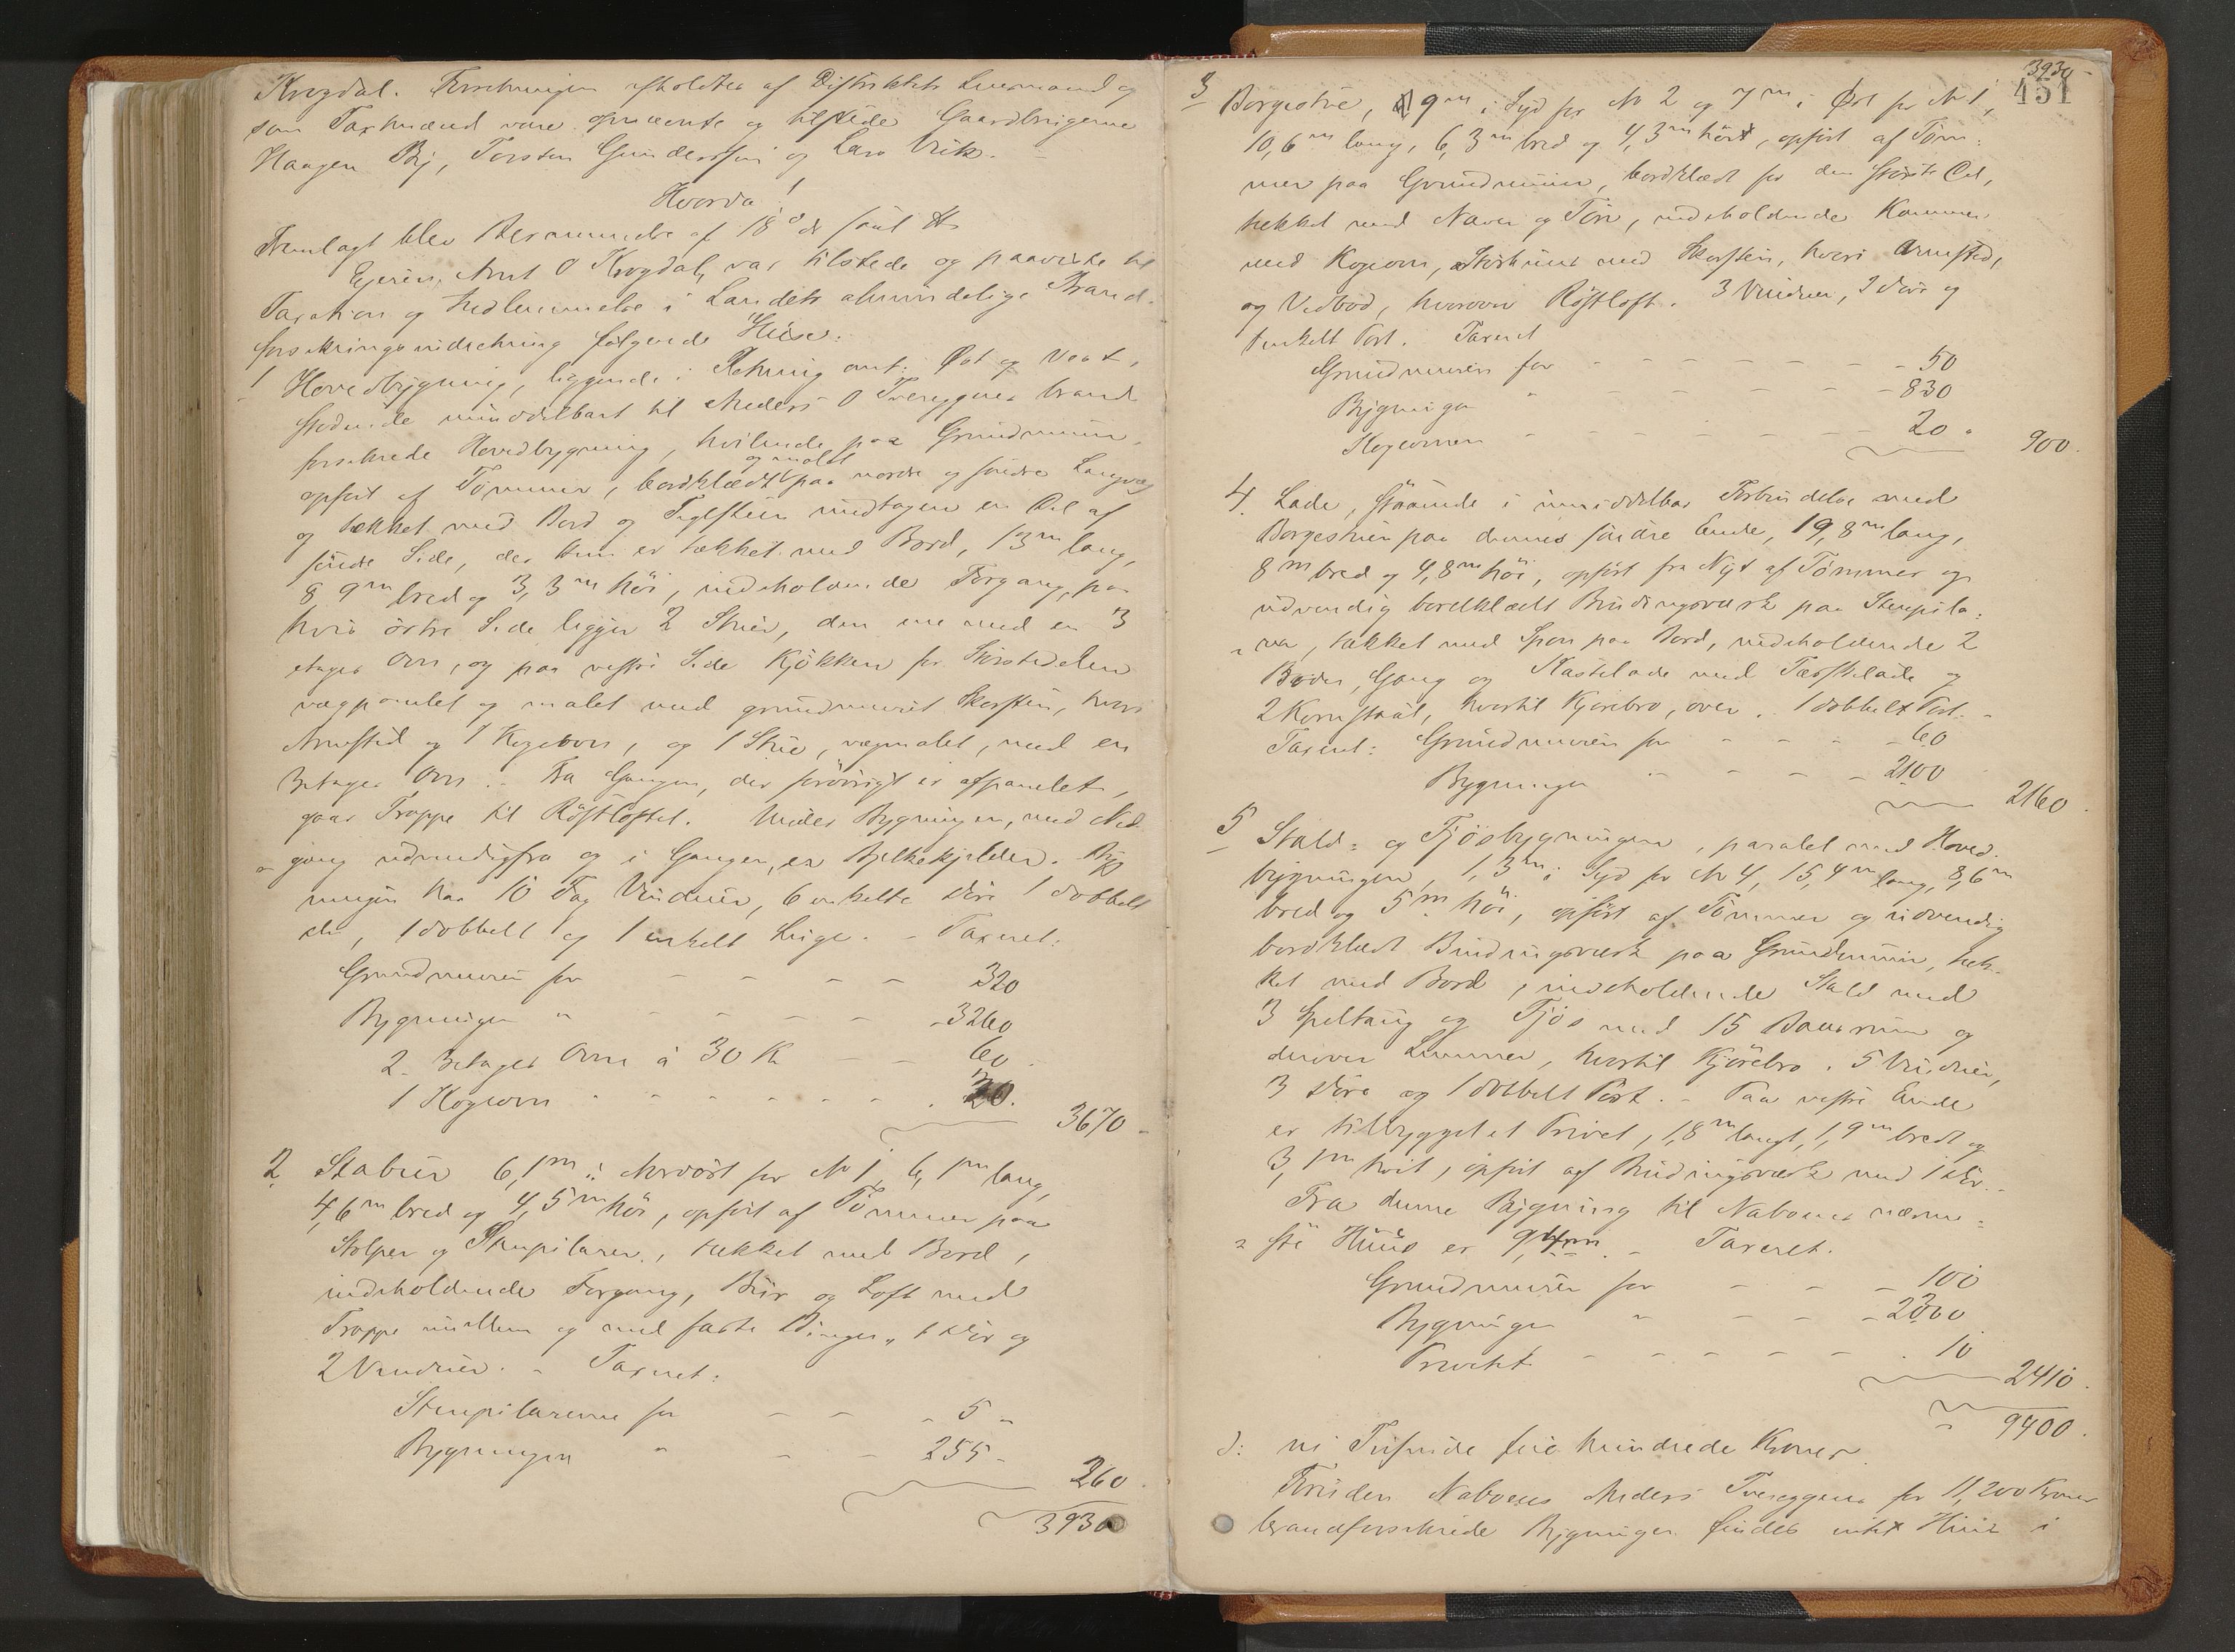 Krogdal. Forretningen afholdtes af Distriktets Lensmand og
som Taxtmænd vare opnævnte og tilstede Gaardbrugerne
Haagen By, Torsten Gundersen og Lars Vik.
Hvorda!
Fremlagt blev Berammelse af 18de ds
Ejeren, Arnt O Krogdal, var tilstede og paaviste til
Taxation og Indlemmelse i Landets almindelige Brand-
forsikringsindretning følgende Huse:
1 Hovedbygning, liggende i Retning omt. Øst og Vest,
stødende umiddelbart til Anders O Tvereggens brand
forsikrede Hovedbygning, hvilende paa Grundmuur,
opført af Tømmer, bordklædt og malt paa nordre og søndre Langvæg
og tækket med Bord og Teglsten undtagen en Del af
søndre Side, der kun er tækket med Bord, 13m lang,
8,9m bred og 3,3m høi, indeholdende Forgang, paa
hvis østre Side ligger 2 Stuer, den ene med en 3
etages Ovn, og paa vestre Side Kjøkken for Størstedelen
vægpanelet og malet med grundmuret Skorsten, hvori
Arnested og 1 Kogeovn, og 1 Stue, vægmalet, med en
3etages Ovn. Fra Gangen, der forøvrigt er afpanelet,
gaar Trappe til Røstloftet. Under Bygningen, med Ned-
gang udvendigfra og i Gangen, er Kjelder. Byg
ningen har 10 Fag Vinduer, 6 enkelte Døre 1 dobbelt
do, 1 dobbelt og 1 enkelt Luge. - Taxeret:
Grundmuren for - - - - 320
Bygningen " - - - - 3260
2 - 3etages Ovne à 30 K - - 60
1 Kogeovn - - - - - 30.
3670 -
2 Stabur 6,1m i Nordøst for No 1, 6,1m lang,
4,6m bred og 4,5m høi, opført af Tømmer paa
Stolper og Stenpilarer, tækket med Bord,
indeholdende Forgang, Bur og Loft med
Trappe mellem og med faste Binger, 1 Dør og
2 Vinduer. - Taxeret:
Stenpilarerne for - - - 5 -
Bygningen " - - 255 -
260
3930
3930 -
451
3 Borgestue, 9m i Syd for No 2 og 7m i Øst for No 1,
10,6m lang, 6,3m bred og 4,3m høi, opført af Tøm-
mer paa Grundmuur, bordklædt for den største Del,
tækket med Næver og Torv, indeholdende Kammer
med Kogeovn, Storstue med Skorsten, hvori Arnested,
og Vedbod, hvorover Røstloft. 3 Vinduer, 2 Døre og
1 enkelt Port. Taxeret
Grundmuren for - - - - - 50
Bygningen " - - - - - 830
Kogeovnen - - - - - 20 -
900.
4. Lade, staaende i umiddelbar Forbindelse med
Borgestuen paa dennes søndre Ende, 19,8m lang,
8m bred og 4,8m høi, opført fra Nyt af Tømmer og
udvendig bordklædt Bindingsværk paa Stenpila-
rer, tækket med Spon paa Bord, indeholdende 2
Boder, Gang og Kastelade med Tærskelade og
2 Kornstaal, hvortil Kjørebro, over. 1 dobbelt Port. -
Taxeret: Grundmuren for - - - - 60
Bygningen - - - - 2100
2160.
5 Stald- og Fjøsbygningen, paralel med Hoved-
bygningen, 1,3m i Syd for No 4, 15,4m lang, 8,6m
bred og 5m høi, opført af Tømmer og udvendig
bordklædt Bindingsværk paa Grundmuur, tæk-
ket med Bord, indeholdende Stald med
3 Spiltaug og Fjøs med 15 Baasrum og
derover Lemmer, hvortil Kjørebro. 5 Vinduer,
3 Døre og 1 dobbelt Port. - Paa vestre Ende
er tilbygget et Privet, 1,8m langt, 1,9m bredt og
3,1m høit, opført af Bindingsværk med 1 Dør. -
Fra denne Bygning til Naboens nærme-
ste Huus er 9,4m. - Taxeret.
Grundmuren for - - - 100
Bygningen " - - - 2300
Privetet - - - - - 10
2410.
9400.
ɔ: ni Tusinde fire hundrede Kroner.
Foruden Naboens Anders Tvereggens for 11,200 Kroner
brandforsikrede Bygninger findes intet Huus i